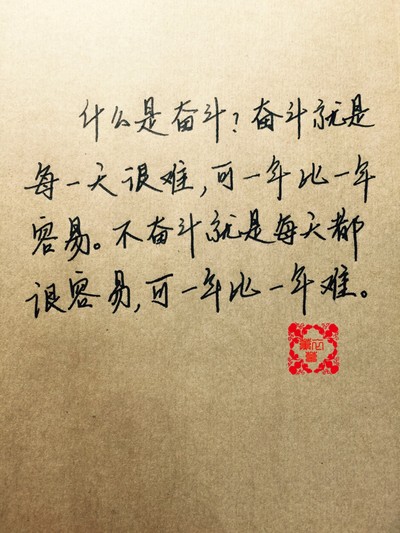 什么是奋斗？奋斗就是
每一天很难，可一年比一年
容易。不奋斗就是每天都
很容易，可一年比一年难。